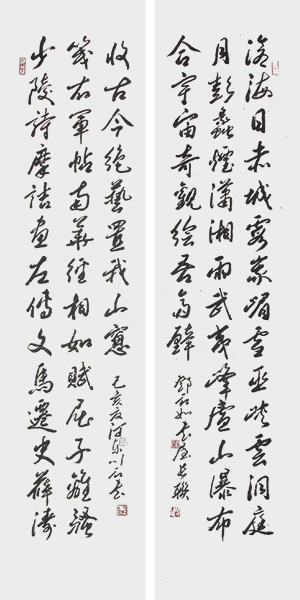 滄海日赤城霞峨嵋雪巫峽雲洞庭
月彭蠡煙瀟湘雨武夷峰廬山瀑布
合宇宙奇觀繪吾齋壁
鄧石如書屋長聯
少陵詩摩詰畫左傳文馬遷史薛濤
箋右軍帖南華經相如賦屈子離騷
收古今絕藝置我山窗
己亥夏